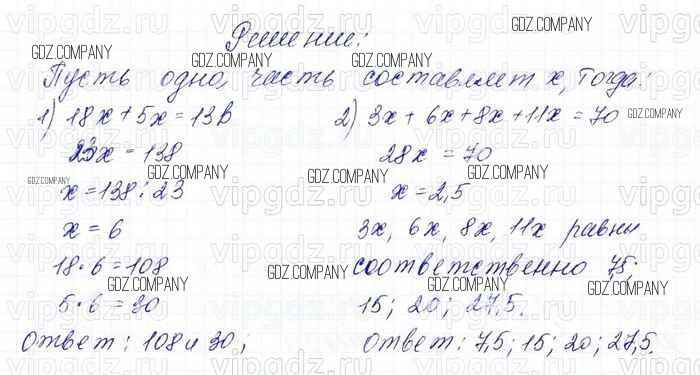 Решение:
Пусть одна часть составляет x, тогда:
1) 18x + 5x = 138
23x = 138
x = 138 : 23
x = 6
18 · 6 = 108
5 · 6 = 30
Ответ: 108 и 30;
2) 3x + 6x + 8x + 11x = 70
28x = 70
x = 2,5
3x, 6x, 8x, 11x равны
соответственно 7,5;
15; 20; 27,5.
Ответ: 7,5; 15; 20; 27,5.
GDZ.COMPANY
vipgdz.com